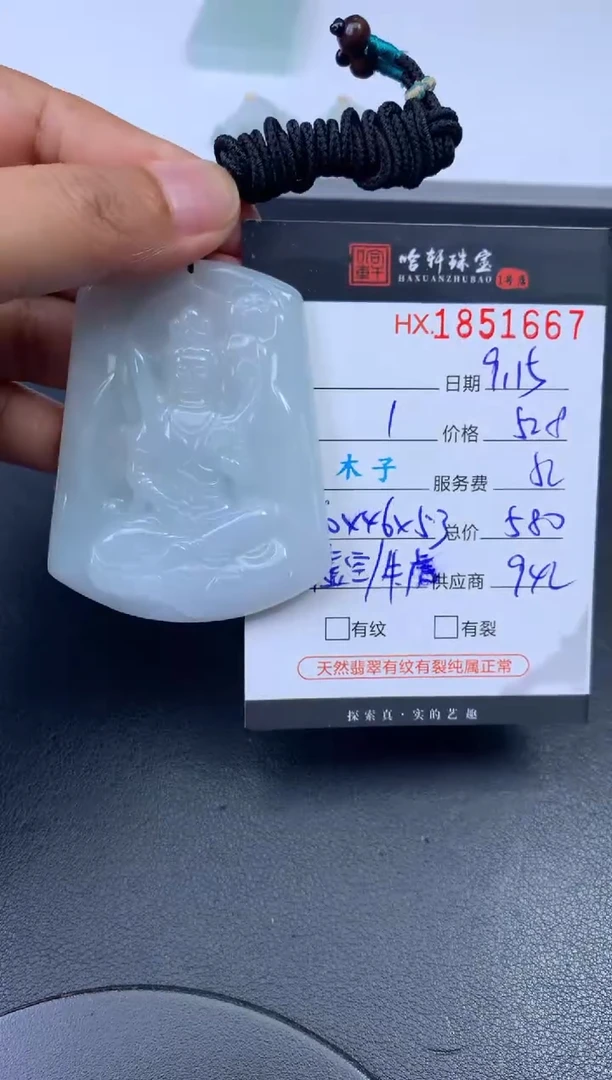 哈轩珠宝
HAXUANZHUBAO 1号店
HX.1851667
日期 9.15
1 价格 528
木子 服务费 52
总价 580
虚空/牛虎 供应商 942
有纹 有裂
天然翡翠有纹有裂纯属正常
探索真·实的艺趣